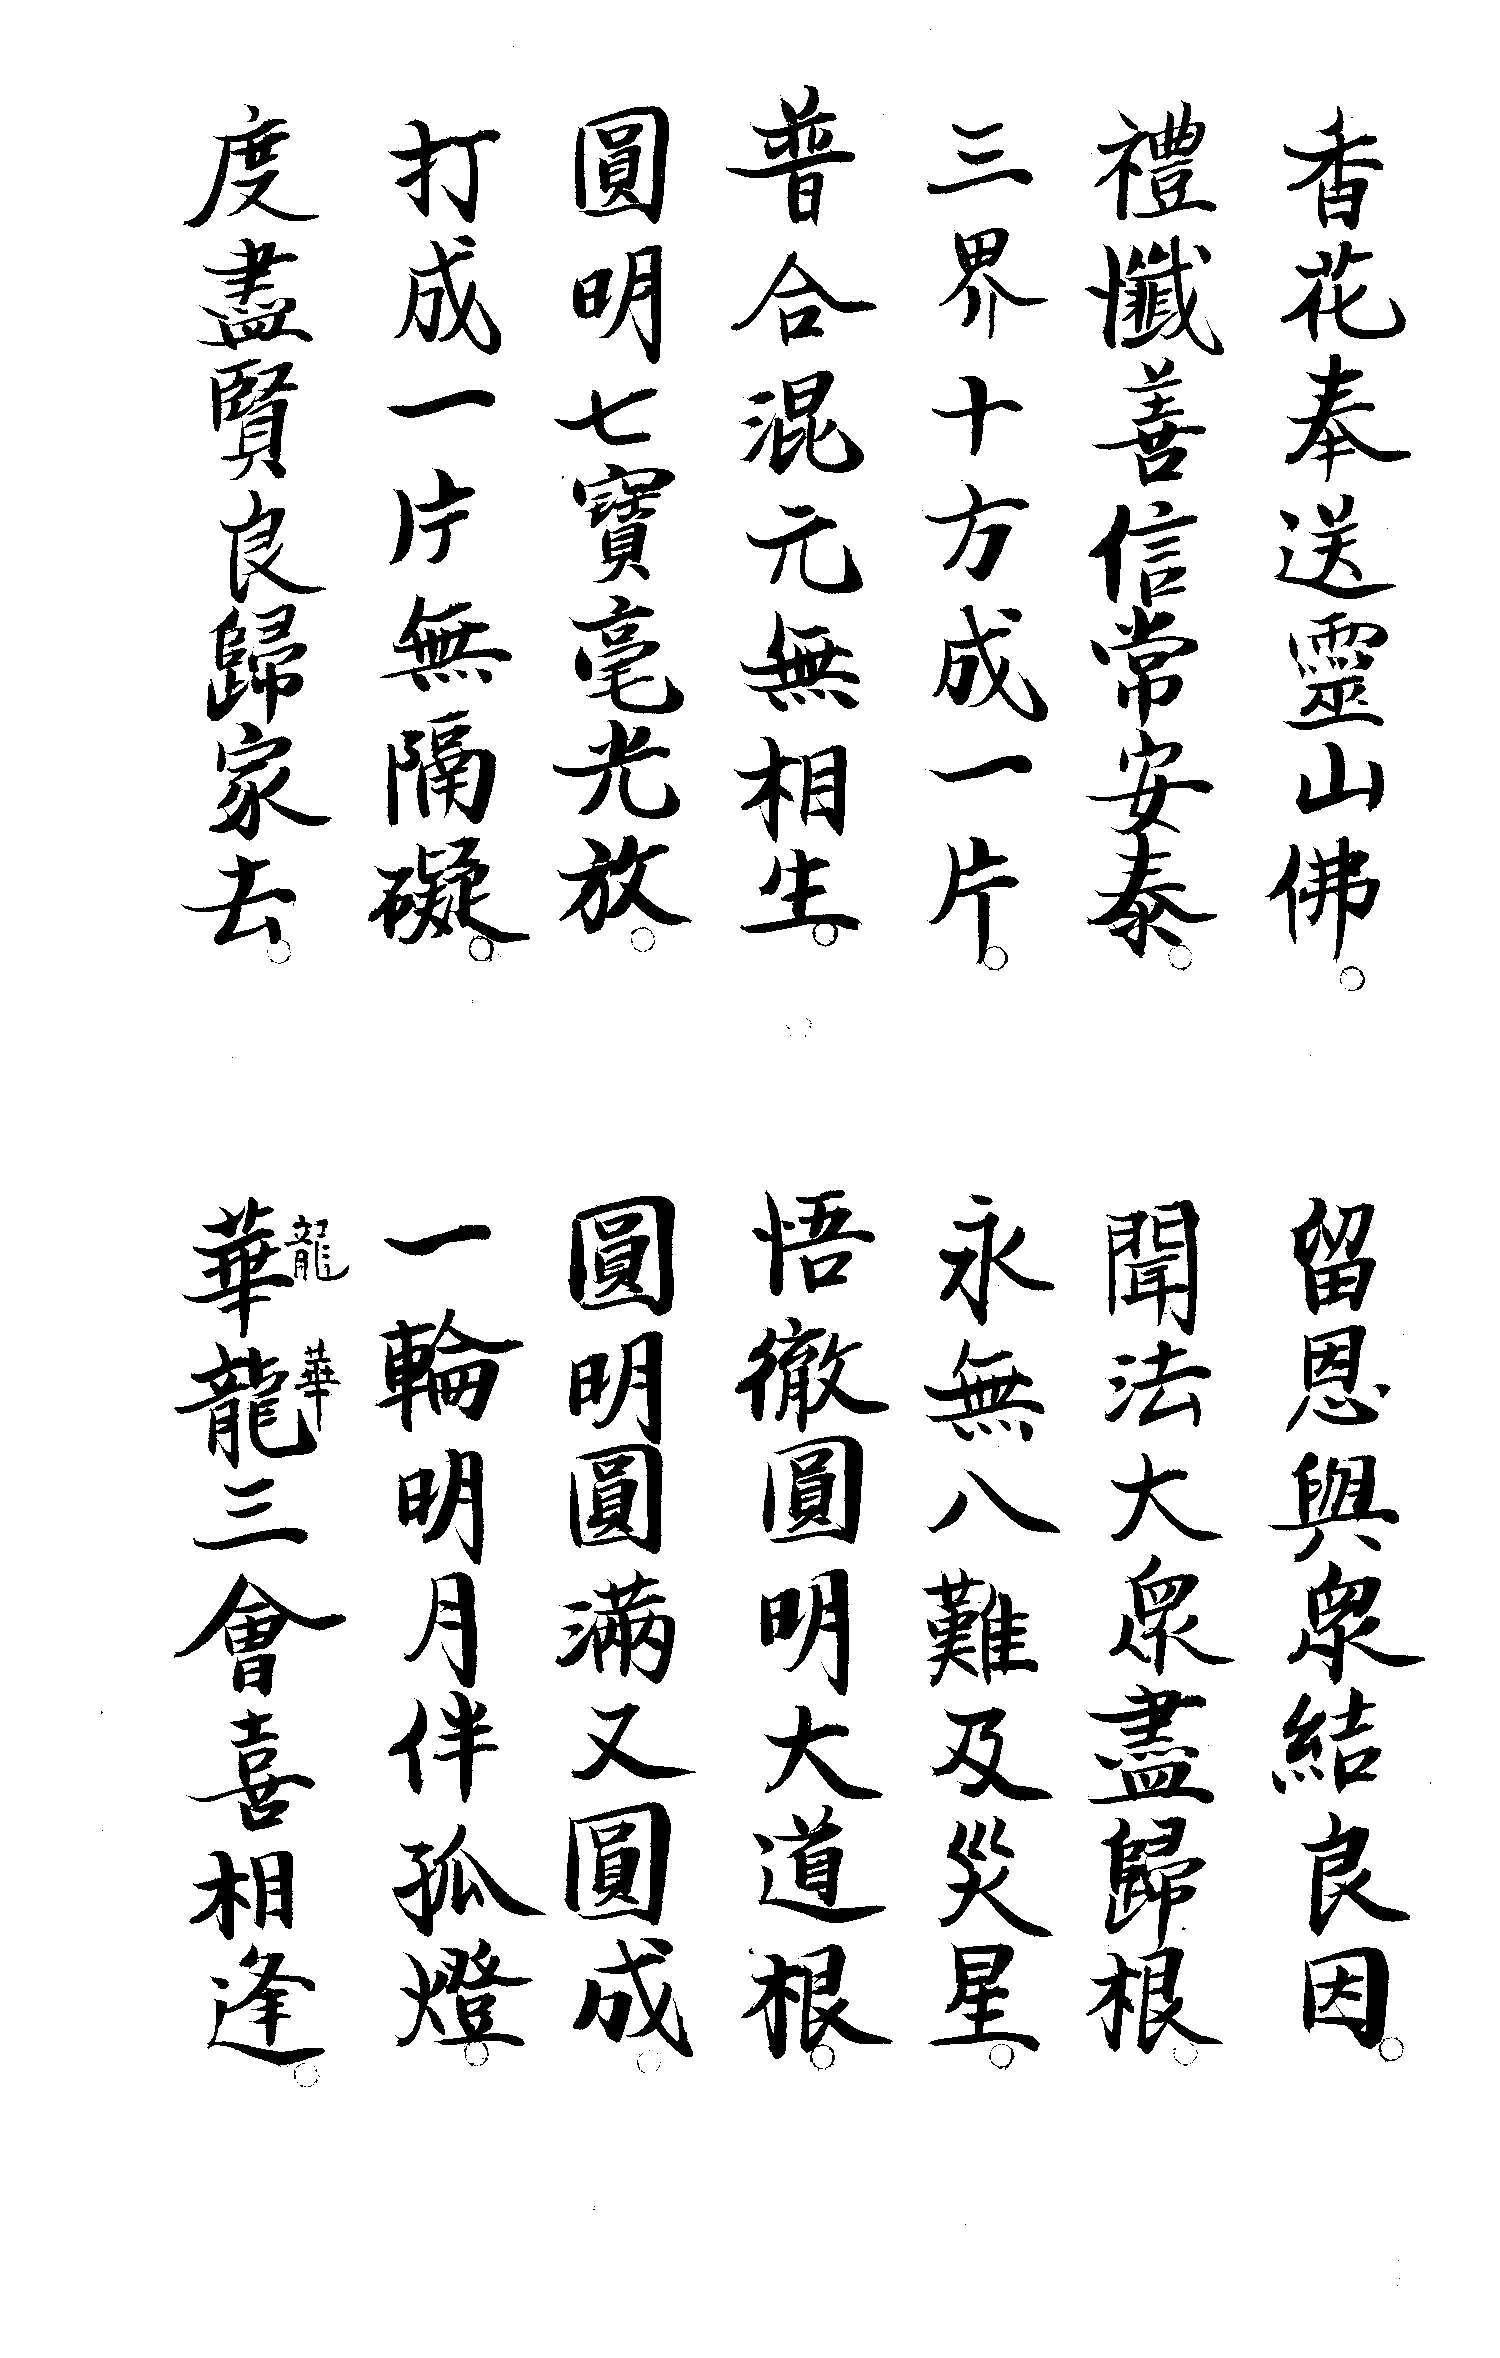 香花奉送靈山佛。
留恩與眾結良因。
禮懺善信常安泰。
聞法大眾盡歸根。
三界十方成一片。
永無八難及災星。
普合混元無相生。
悟徹圓明大道根。
圓明七寶毫光放。
圓明圓滿又圓成。
打成一片無隔礙。
一輪明月伴孤燈。
度盡賢良歸家去。
龍華
華龍三會喜相逢。